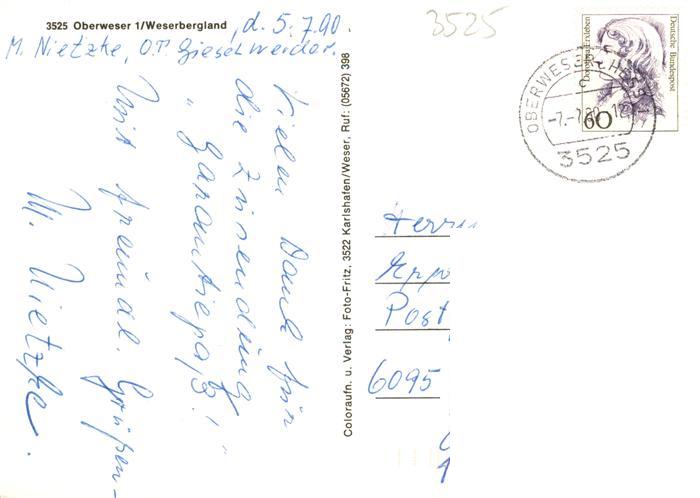 3525 Oberweser 1/Weserbergland
, d. 5.7.90.
M. Nietzke, O.T. Gieselwerder.
Vielen Dank für
die Zusendung
„Garantiepaß!"
Mit freundl. Grüßen-
M. Nietzke.
Coloraufn. u. Verlag: Foto-Fritz, 3522 Karlshafen/Weser, Ruf: (05672) 398
3525
Deutsche Bundespost
60
OBERWESER
-7.-7.90.-12
3525
Herrn
Post
6095